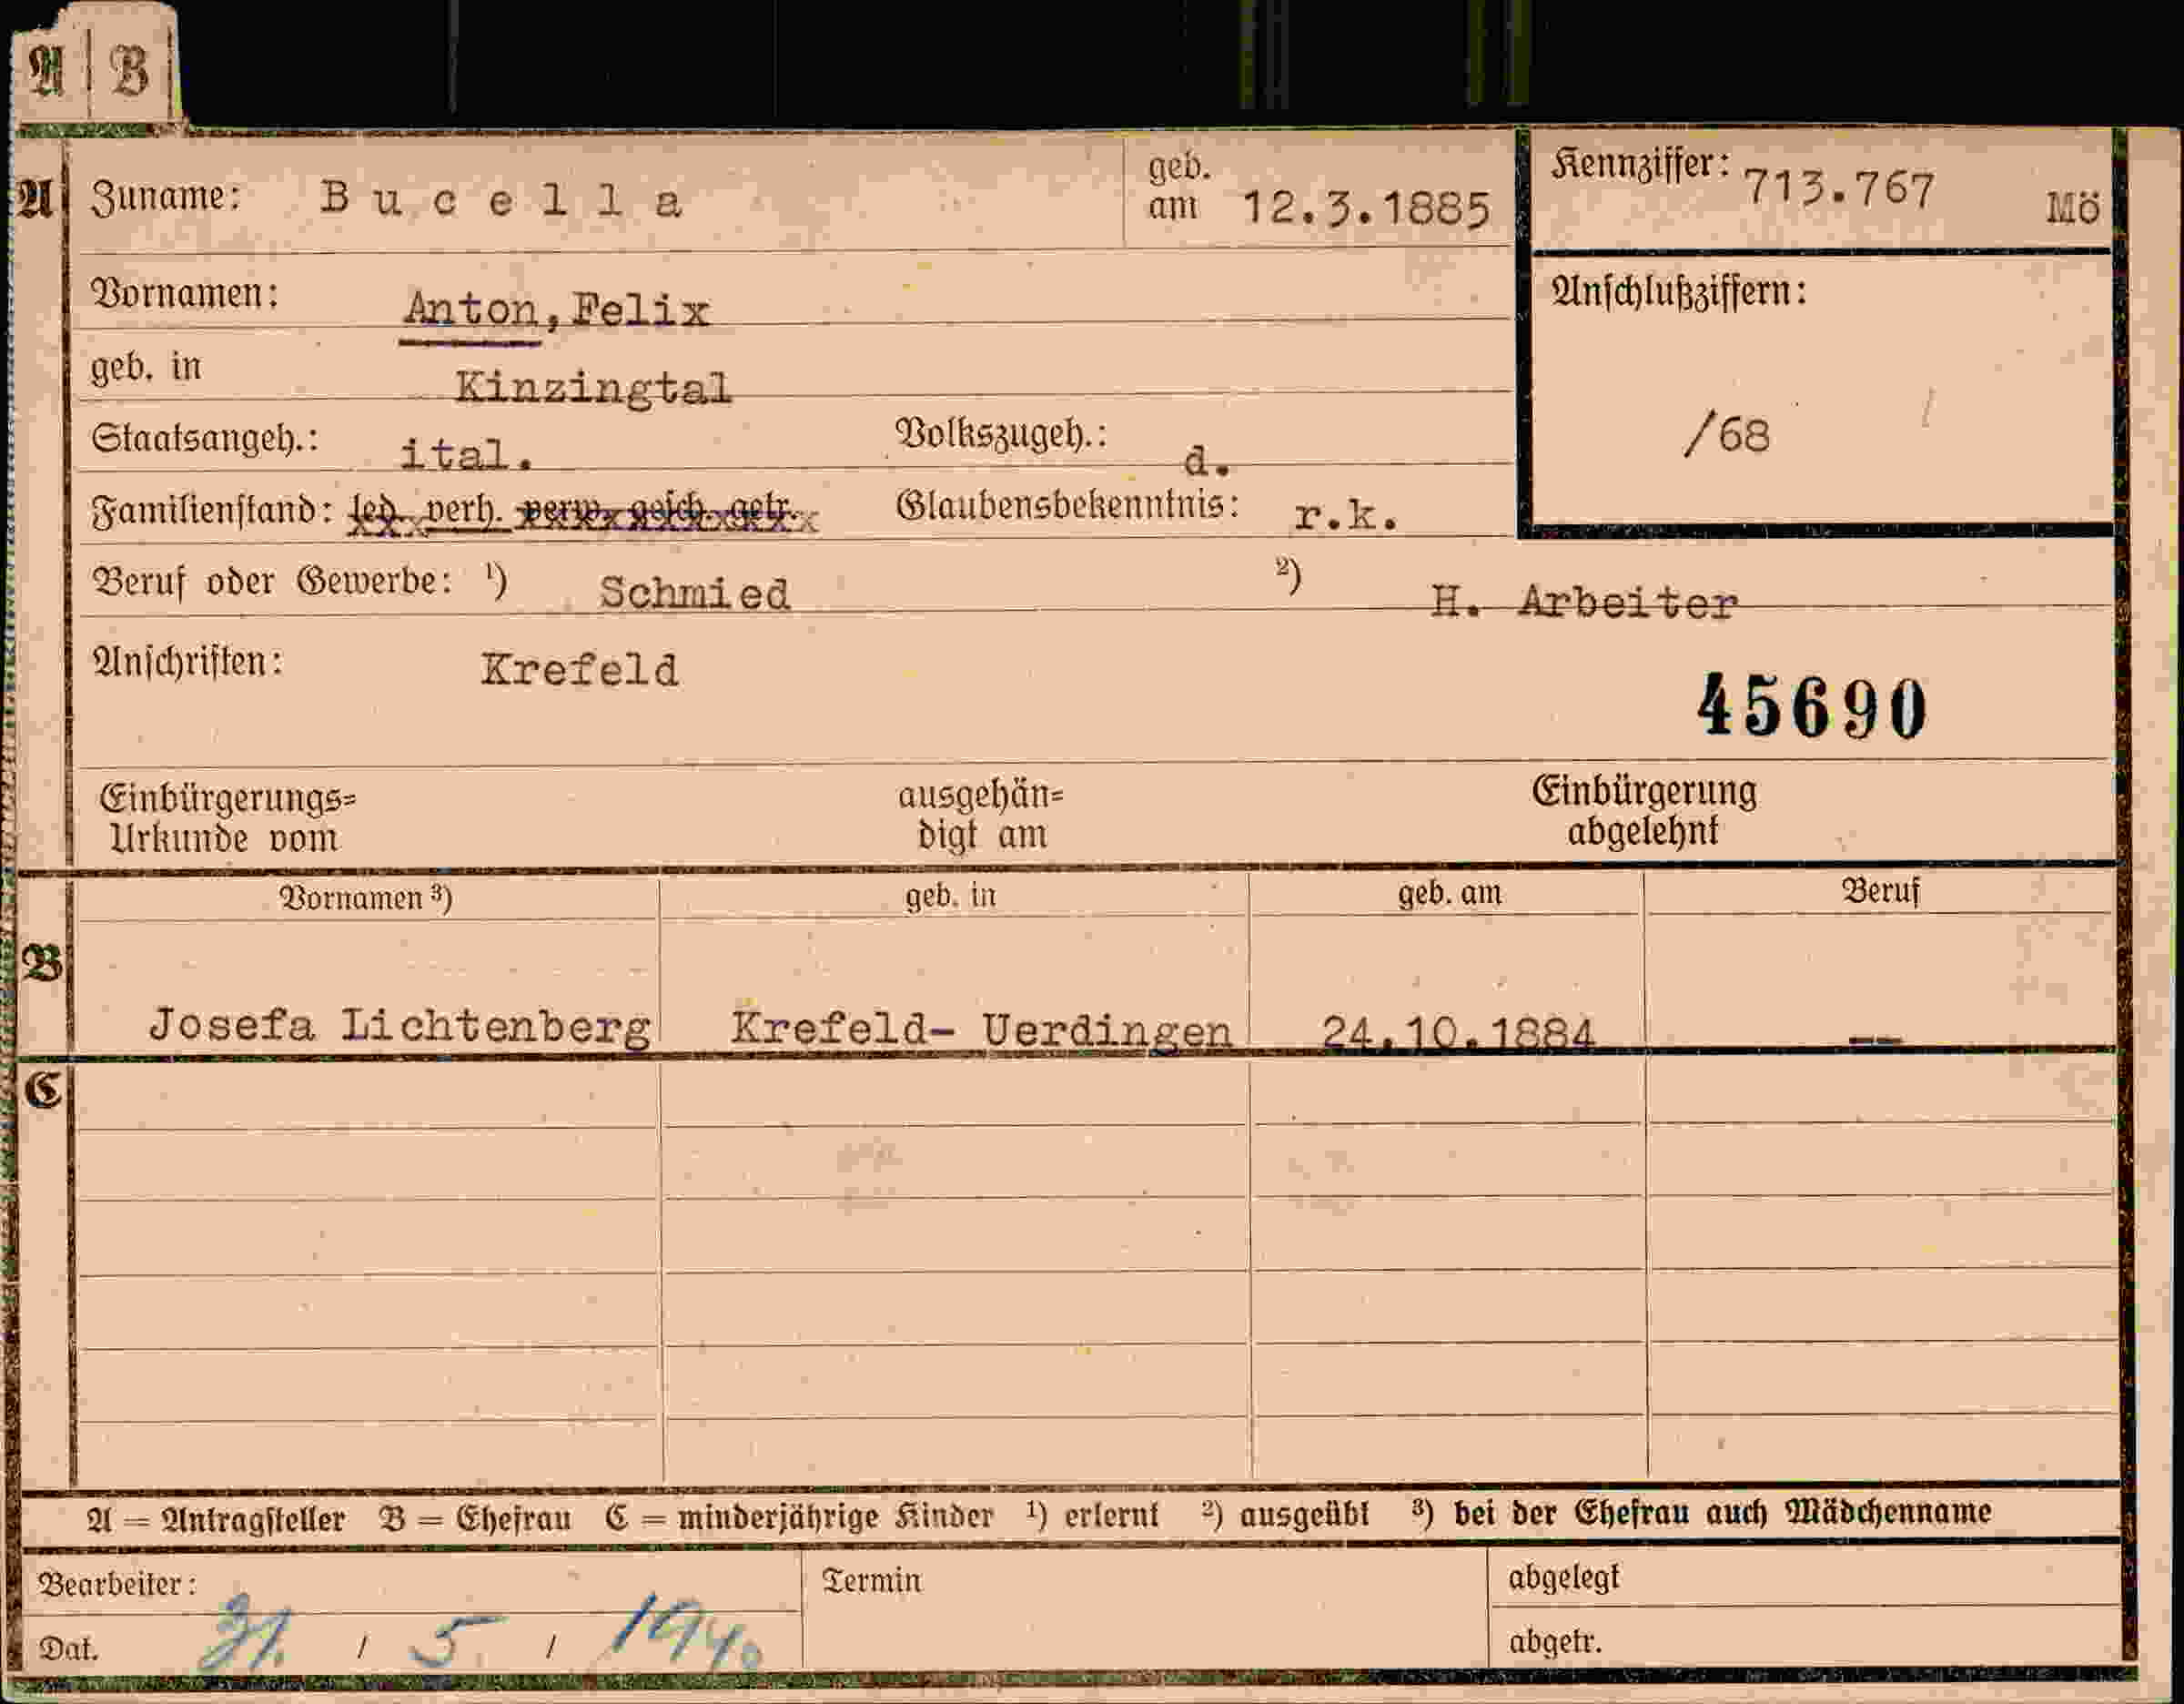 A | B
A Zuname: Bucella geb. am 12.3.1885 Kennziffer: 713.767 Mö
Vornamen: Anton, Felix Anschlußziffern:
geb. in Kinzingtal
Staatsangeh.: ital. Volkszugeh.: d. /68
Familienstand: led. verh. verw. gesch. getr. Glaubensbekenntnis: r.k.
Beruf oder Gewerbe: ¹) Schmied ²) H. Arbeiter
Anschriften: Krefeld
45690
Einbürgerungs= ausgehän= Einbürgerung
Urkunde vom digt am abgelehnt
Vornamen ³) geb. in geb. am Beruf
B
Josefa Lichtenberg Krefeld- Uerdingen 24.10.1884 --
C
A = Antragsteller B = Ehefrau C = minderjährige Kinder ¹) erlernt ²) ausgeübt ³) bei der Ehefrau auch Mädchenname
Bearbeiter: Termin abgelegt
Dat. 31. / 5 / 1940 abgetr.